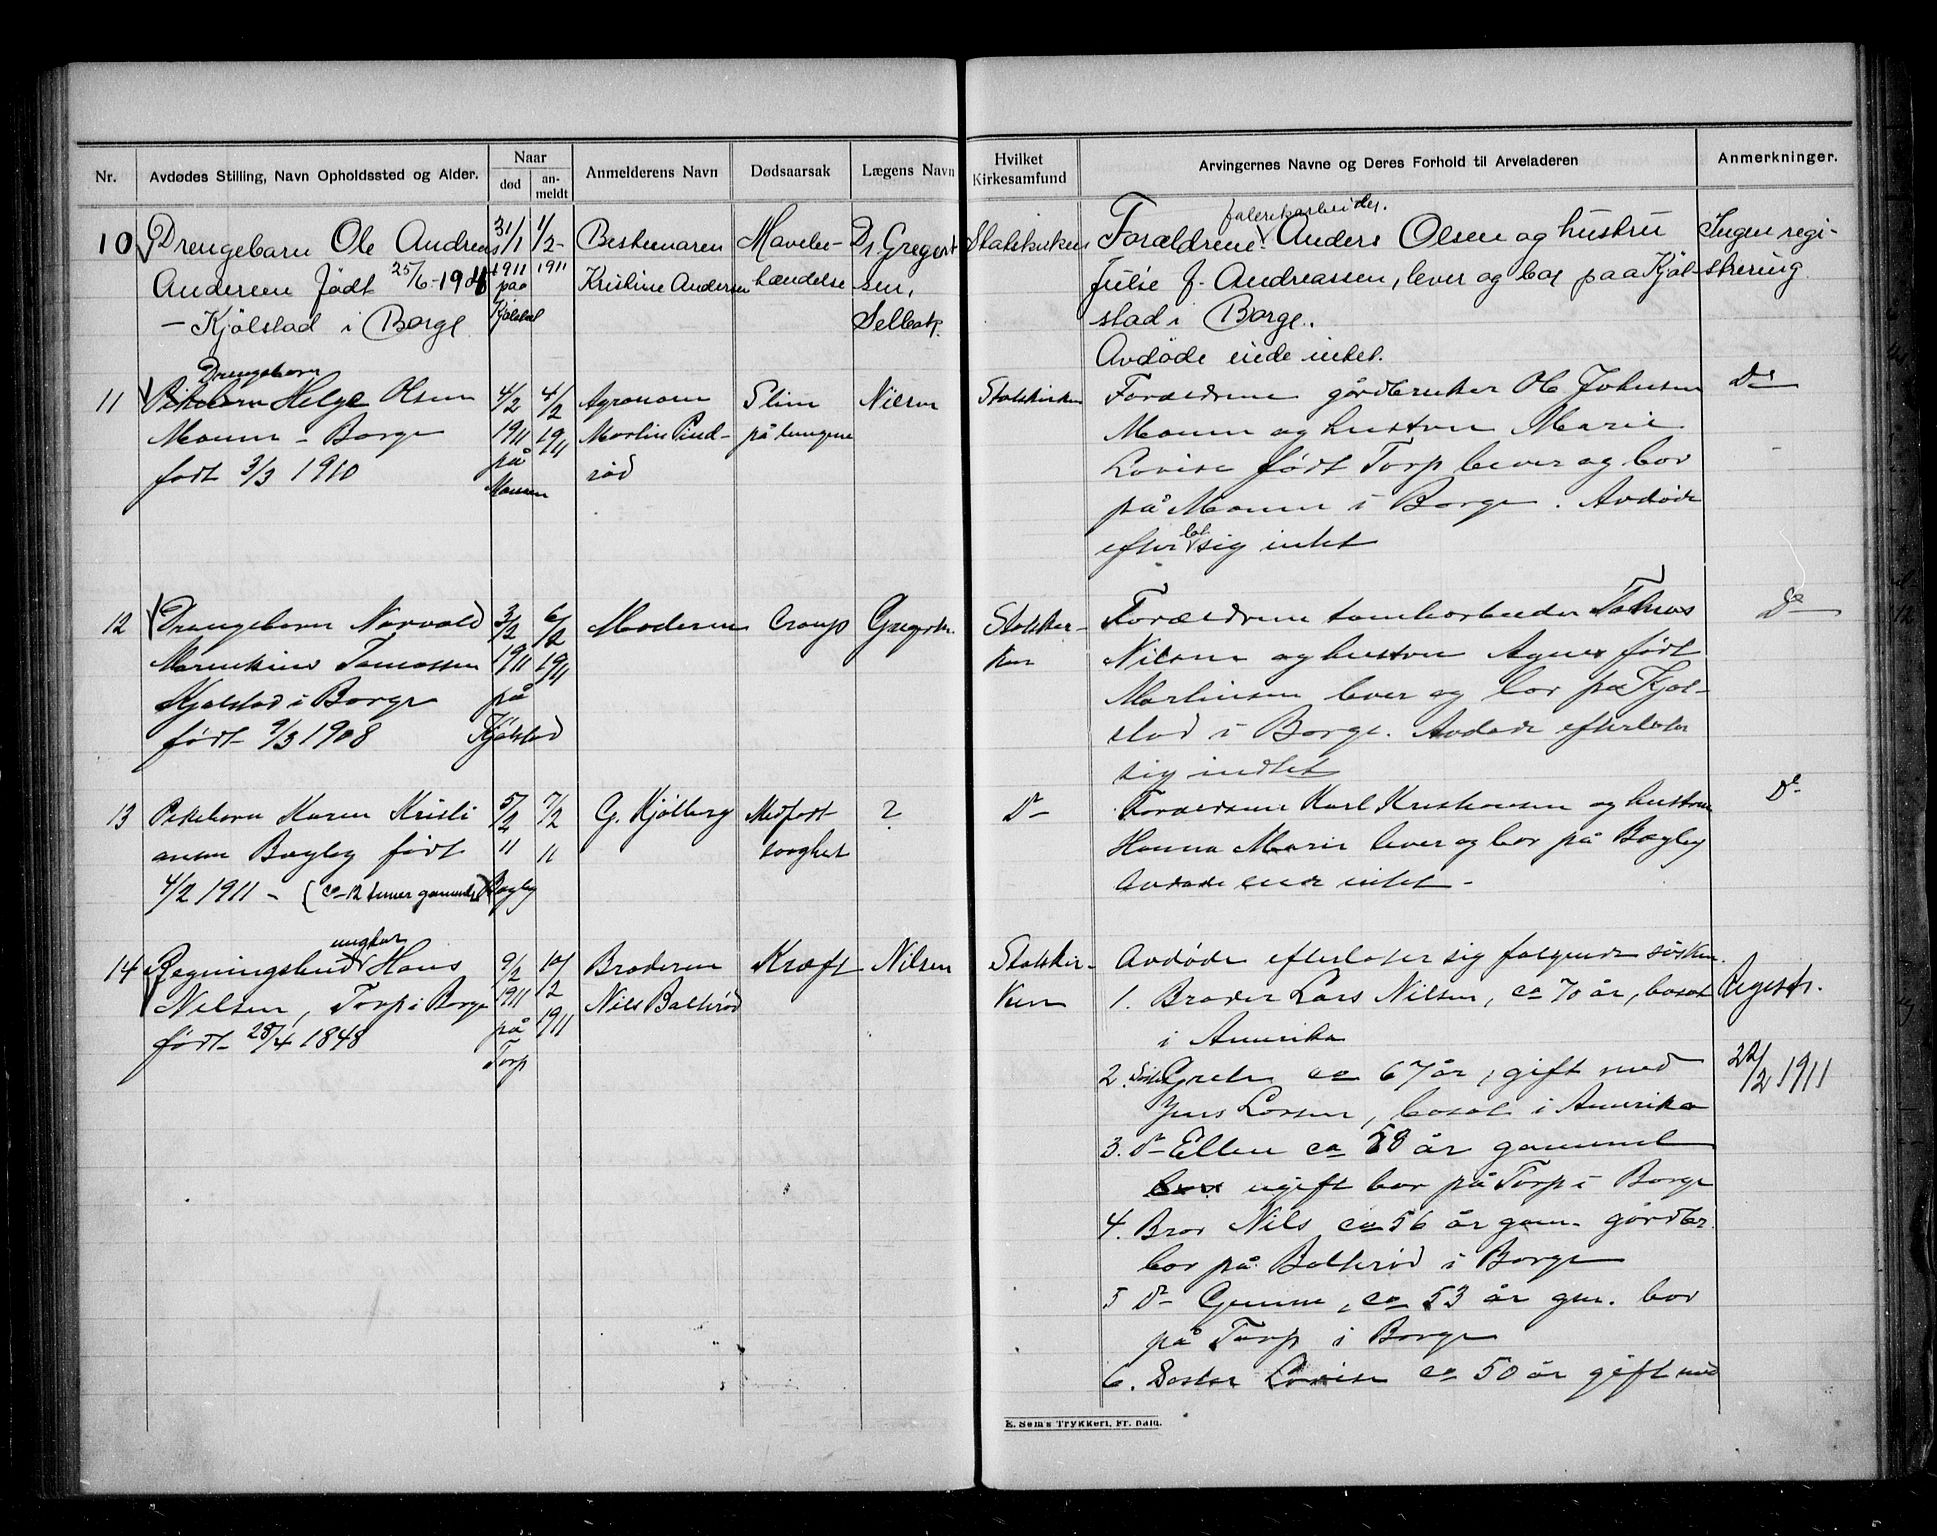 Nr.
Avdødes Stilling, Navn Opholdssted og Alder.
Naar
død
an-
meldt
Anmelderens Navn
Dødsaarsak
Lægens Navn
Hvilket
Kirkesamfund
Arvingernes Navne og Deres Forhold til Arveladeren
Anmerkninger.
10
Drengebarn Ole Andreas
Andersen født 25/6-1904
- Kjølstad i Borge
31/1
1911
paa
Kjølstad
1/2-
1911
Bestemoren
Kristine Andersen
Mavebe-
tændelse
Dr. Gregert-
sen,
Selbak
Statskirken
fabrikarbeider.
Forældrene Anders Olsen og hustru
Julie f. Andreassen, lever og bor paa Kjøl-
stad i Borge.
Avdøde eiede intet.
Ingen regi-
strering
11
Drengebarn
Pikebarn Helge Olsen
Moum - Borge
født 3/3 1910
4/2
1911
på
Moum
4/2
1911
Agronom
Martin Pind-
rød
Slim
på lungene
Nilsen
Statskirken
Forældrene gårdbruker Ole Johnsen
Moum og hustru Marie
Lovise født Torp lever og bor
på Moum i Borge. Avdøde
efterlot sig intet
Do
12
Drengebarn Norvald
Tomassen
Kjølstad i Borge
født 9/3 1908
3/2
1911
på
Kjølstad
6/2
1911
Moderen
Croup
Gregerts.
Statskir-
ken
Forældrene tomtearbeider Tomas
Nilsen og hustru Agnes født
Martinsen lever og bor på Kjøl-
stad i Borge. Avdøde efterlater
sig indtet
Do
13
Pikebarn Karen Kristi
ansen Bøgby født
4/2 1911 - (ca 12 timer gammel)
5/2
11
Bøgby
7/2
11
G. Kjølberg
Medfødt
svaghet
?
Do
Forældrene Karl Kristiansen og hustru
Hanna Marie lever og bor på Bøgby
Avdøde eier intet -
Do
14
ungkar
Regningsbud Hans
Nilsen, Torp i Borge
født 28/4 1848
9/2
1911
på
Torp
10/2
1911
Broderen
Nils Balterød
Kræft
Nilsen
Statskir-
ken
Avdøde efterlater sig følgende søsken.
1. Broder Lars Nilsen, ca 70 år, bosat
i Amerika
2. Søster Grete ca 67 år, gift med
Jens Larsen, bosat i Amerika
3. Do Ellen ca 58 år gammel
ugift bor på Torp i Borge
4. Bror Nils ca 56 år gam. gårdbr.
bor på Balterød i Borge
5 Do ca 53 år gm. bor
på Torp i Borge
6. Søster Lovise ca 50 år gift med
Registr.
22/2 1911
E. Sem's Trykkeri, Fr.hald.